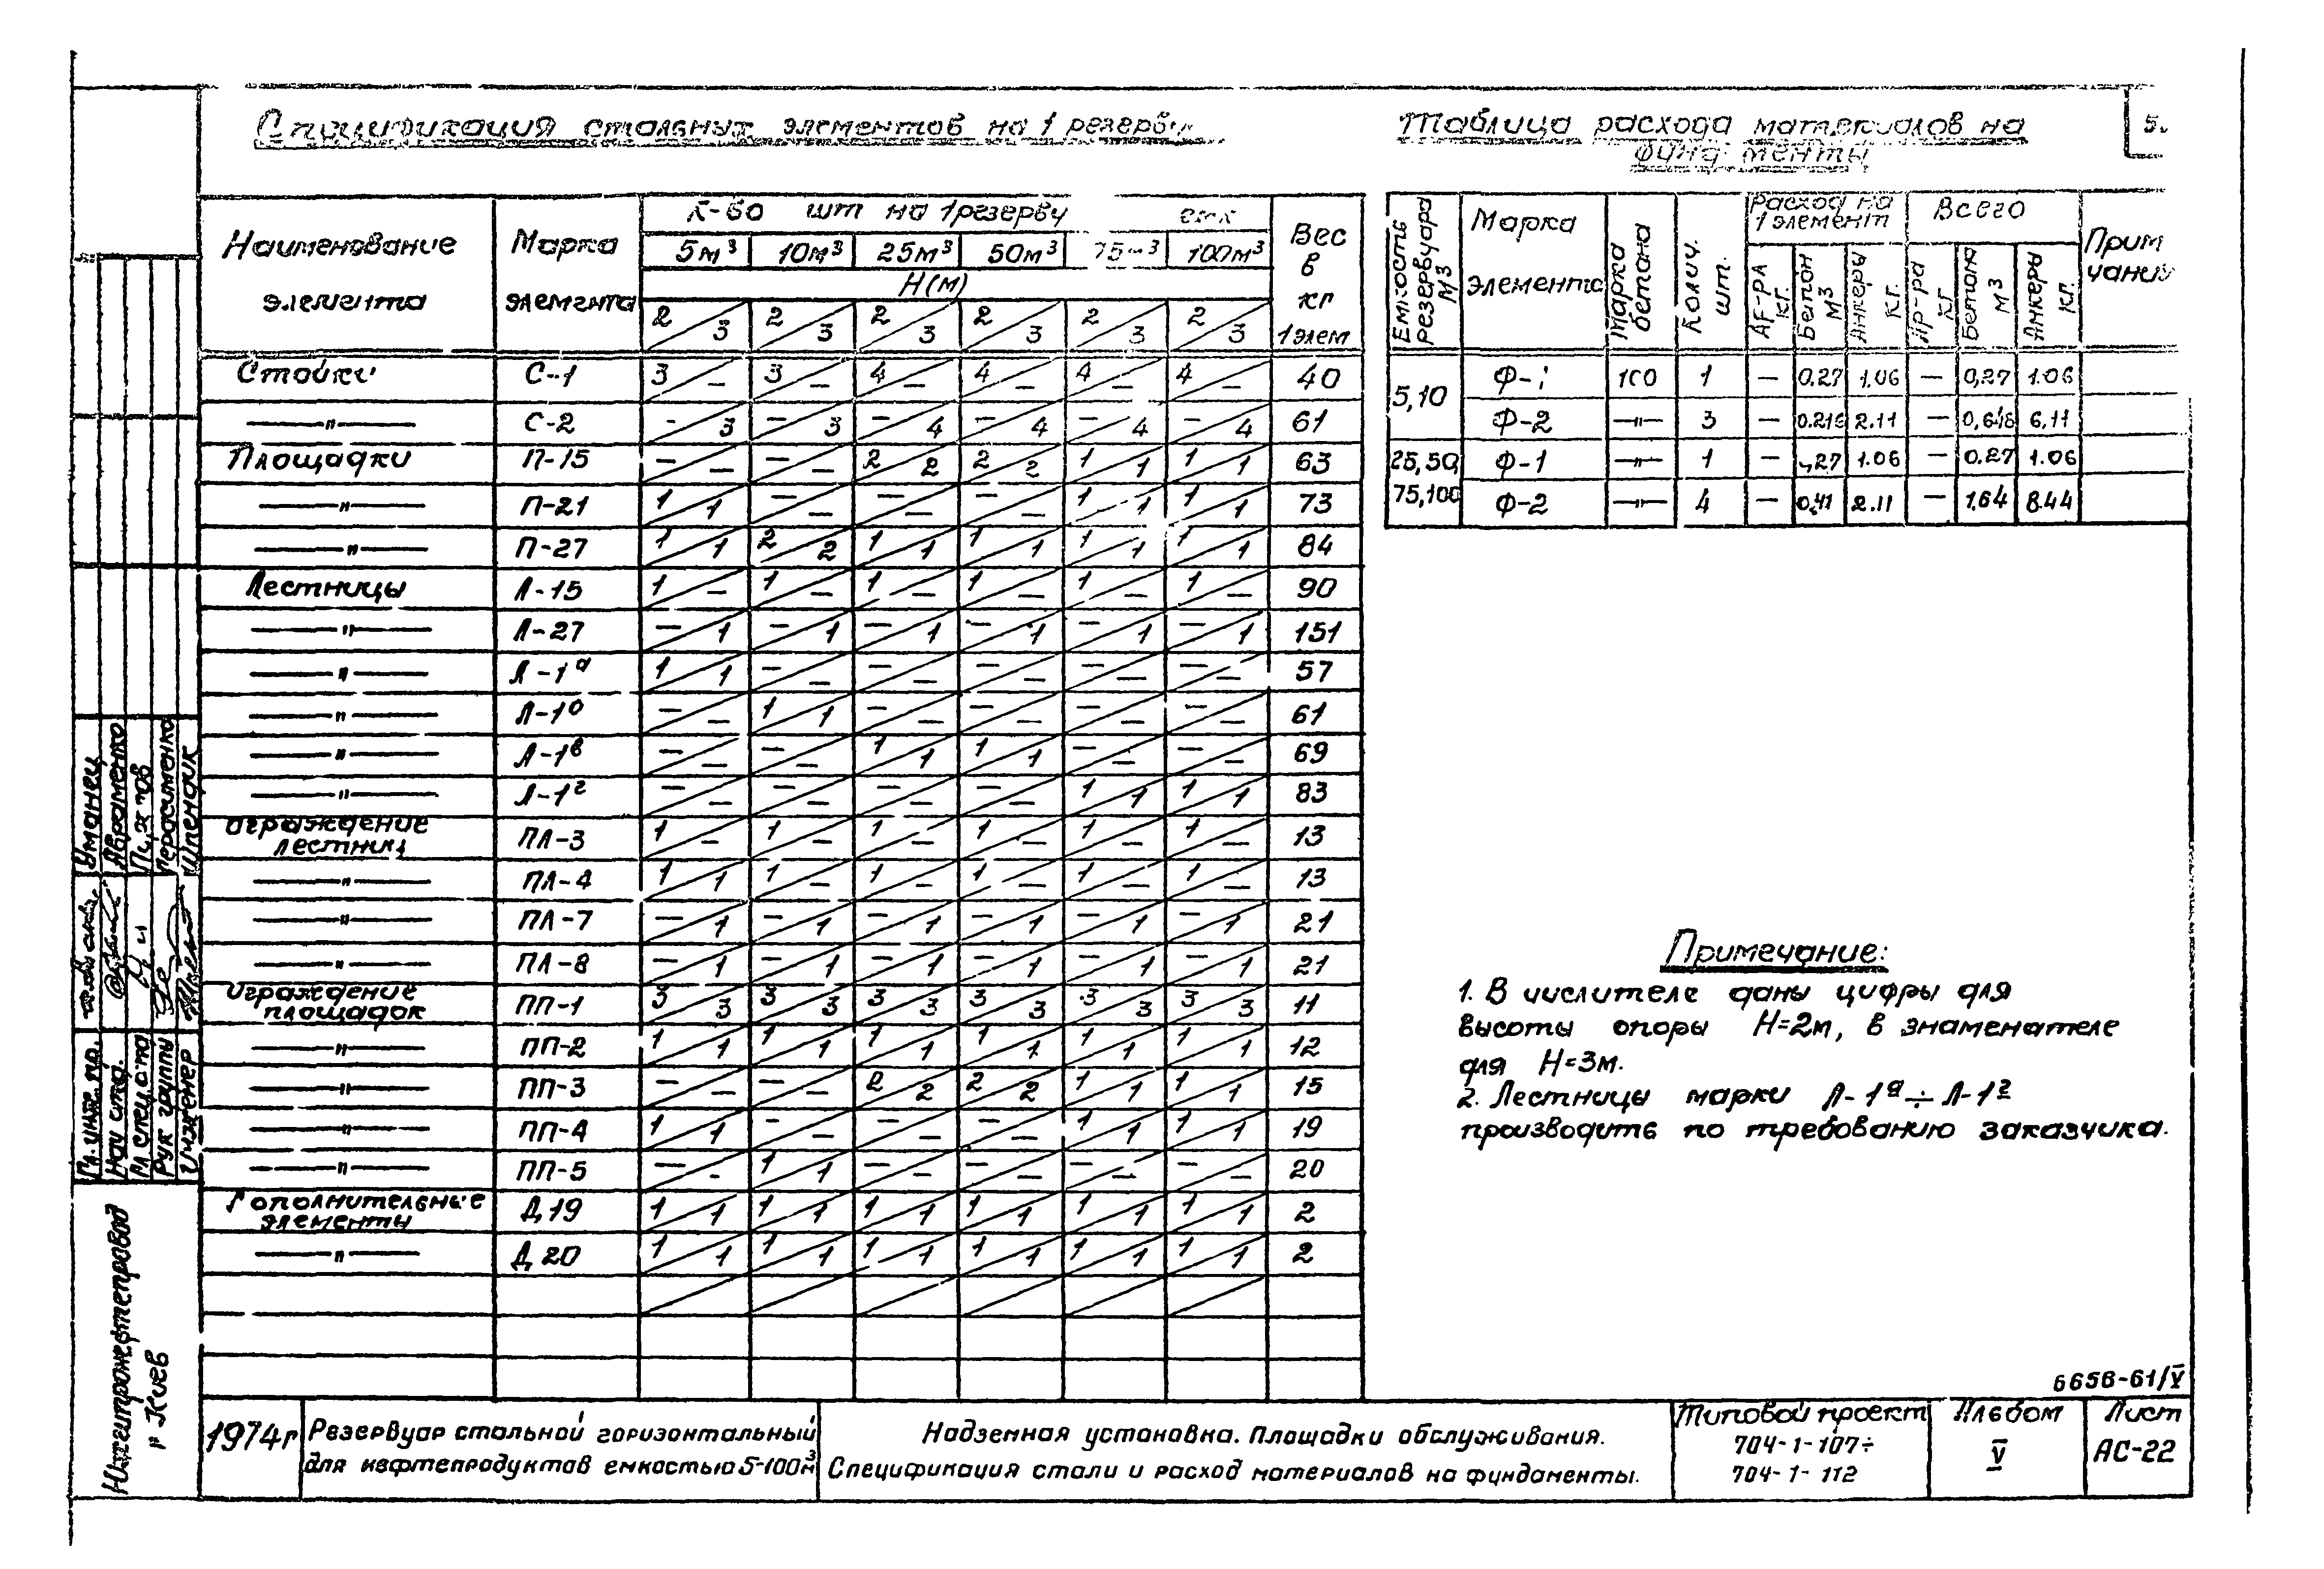 Спецификация стальных элементов на 1 резерву
Таблица расхода материалов на
фунд менты
5.
Наименование элемента | Марка элемента | К-во шт на 1 резерву емк | Вес в кг 1 элем
5м³ | 10м³ | 25м³ | 50м³ | 75м³ | 100м³
Н(м)
2/3 | 2/3 | 2/3 | 2/3 | 2/3 | 2/3
Стойки | С-1 | 3/– | 3/– | 4/– | 4/– | 4/– | 4/– | 40
—"— | С-2 | –/3 | –/3 | –/4 | –/4 | –/4 | –/4 | 61
Площадки | П-15 | –/– | –/– | 2/2 | 2/2 | 1/1 | 1/1 | 63
—"— | П-21 | 1/1 | –/– | –/– | –/– | 1/1 | 1/1 | 73
—"— | П-27 | 1/1 | 2/2 | 1/1 | 1/1 | 1/1 | 1/1 | 84
Лестницы | Л-15 | 1/– | 1/– | 1/– | 1/– | 1/– | 1/– | 90
—"— | Л-27 | –/1 | –/1 | –/1 | –/1 | –/1 | –/1 | 151
—"— | Л-1а | 1/1 | –/– | –/– | –/– | –/– | –/– | 57
—"— | Л-1б | –/– | 1/1 | –/– | –/– | –/– | –/– | 61
—"— | Л-1в | –/– | –/– | 1/1 | 1/1 | –/– | –/– | 69
—"— | Л-1г | –/– | –/– | –/– | –/– | 1/1 | 1/1 | 83
Ограждение лестниц | ПЛ-3 | 1/– | 1/– | 1/– | 1/– | 1/– | 1/– | 13
—"— | ПЛ-4 | 1/1 | 1/– | 1/– | 1/– | 1/– | 1/– | 13
—"— | ПЛ-7 | –/1 | –/1 | –/1 | –/1 | –/1 | –/1 | 21
—"— | ПЛ-8 | –/1 | –/1 | –/1 | –/1 | –/1 | –/1 | 21
Ограждение площадок | ПП-1 | 3/3 | 3/3 | 3/3 | 3/3 | 3/3 | 3/3 | 11
—"— | ПП-2 | 1/1 | 1/1 | 1/1 | 1/1 | 1/1 | 1/1 | 12
—"— | ПП-3 | –/– | –/– | 2/2 | 2/2 | 1/1 | 1/1 | 15
—"— | ПП-4 | 1/1 | –/– | –/– | –/– | 1/1 | 1/1 | 19
—"— | ПП-5 | –/– | 1/1 | –/– | –/– | –/– | –/– | 20
Дополнительные элементы | Д19 | 1/1 | 1/1 | 1/1 | 1/1 | 1/1 | 1/1 | 2
—"— | Д20 | 1/1 | 1/1 | 1/1 | 1/1 | 1/1 | 1/1 | 2
Емкость резервуара м3 | Марка элемента | Марка бетона | Колич. шт. | Расход на 1 элемент | Всего | Прим чание
Ар-ра кг. | Бетон м3 | Анкеры кг. | Ар-ра кг | Бетона м3 | Анкеры кг.
5,10 | Ф-1 | 100 | 1 | — | 0.27 | 1.06 | — | 0,27 | 1.06
Ф-2 | —"— | 3 | — | 0.216 | 2.11 | — | 0,648 | 6,11
25,50, | Ф-1 | —"— | 1 | — | ,27 | 1.06 | — | 0.27 | 1.06
75,100 | Ф-2 | —"— | 4 | — | 0,41 | 2.11 | — | 1.64 | 8.44
Примечание:
1. В числителе даны цифры для
высоты опоры Н=2м, в знаменателе
для Н=3м.
2. Лестницы марки Л-1а÷Л-1г
производить по требованию заказчика.
6658-61/V
Гл. инж. пр. Уманец
Нач. отд. Авраменко
Гл спец отд
Рук группы Герасименко
Инженер Шпендик
Южгипронефтепровод
г Киев
1974г
Резервуар стальной горизонтальный
для нефтепродуктов емкостью 5-100м³
Надземная установка. Площадки обслуживания.
Спецификация стали и расход материалов на фундаменты.
Типовой проект
704-1-107÷
704-1-112
Альбом
V
Лист
АС-22